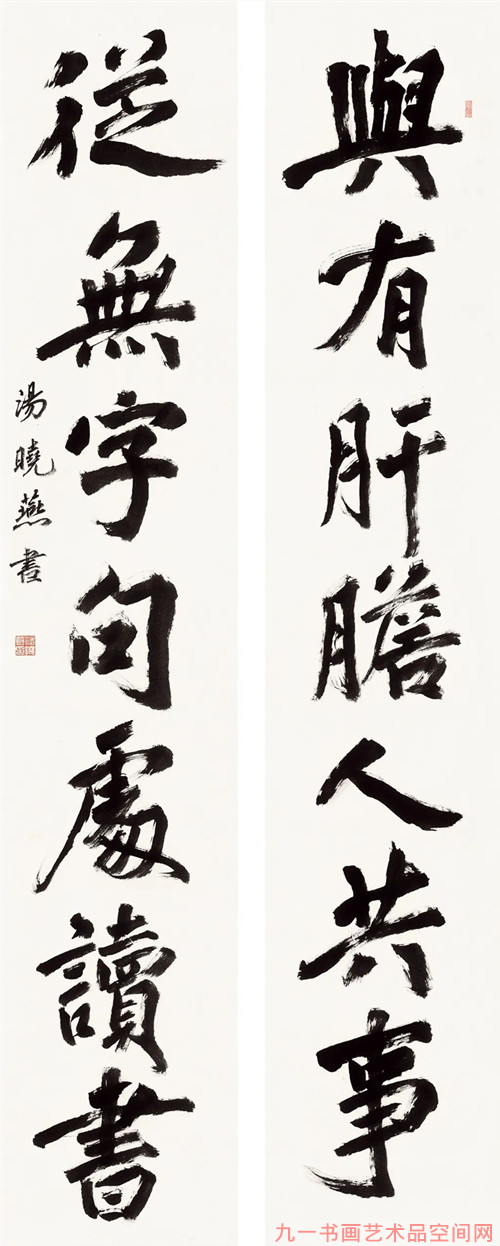 與有肝膽人共事
從無字句處讀書
湯曉燕書
九一书画艺术品空间网